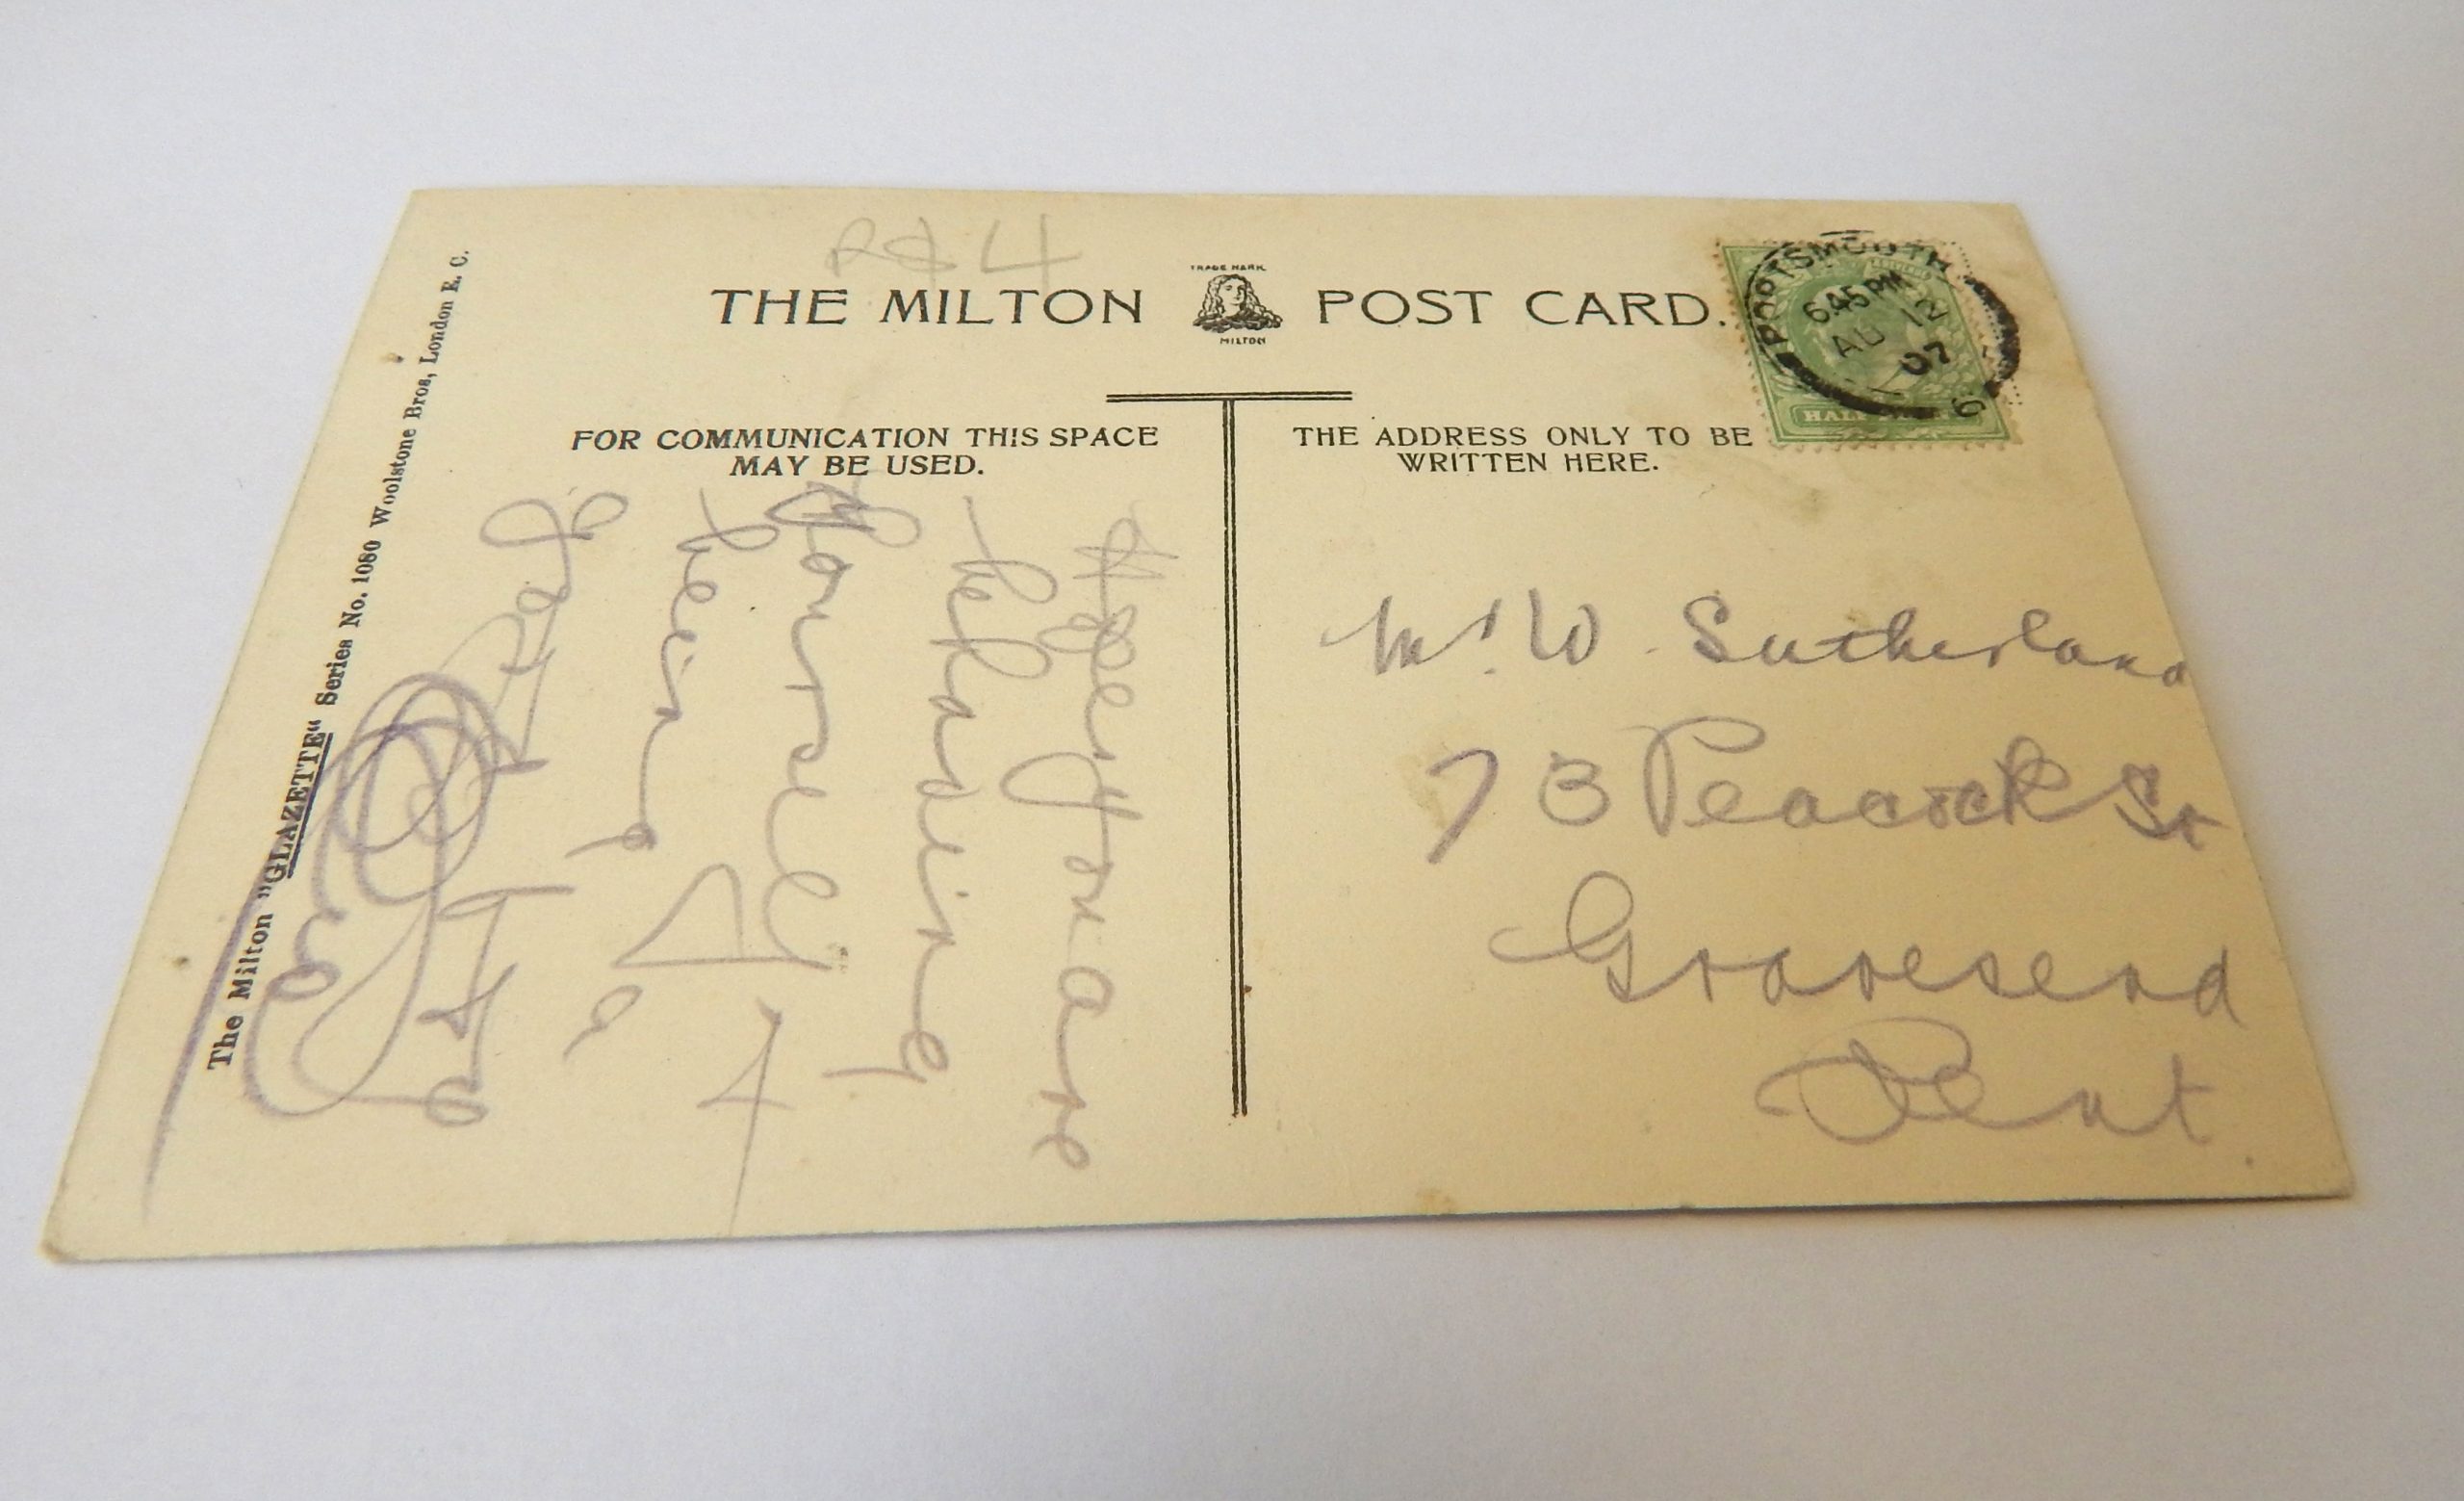 THE MILTON POST CARD.
TRADE MARK
MILTON
FOR COMMUNICATION THIS SPACE
MAY BE USED.
THE ADDRESS ONLY TO BE
WRITTEN HERE.
PORTSMOUTH
6.45 PM
AU 12
07
6
HALF
Hope you are
behaving
yourself &
being a
good
Mr W. Sutherland
73 Peacock St
Gravesend
Kent
The Milton "GLAZETTE" Series No. 1080 Woolstone Bros, London E. C.